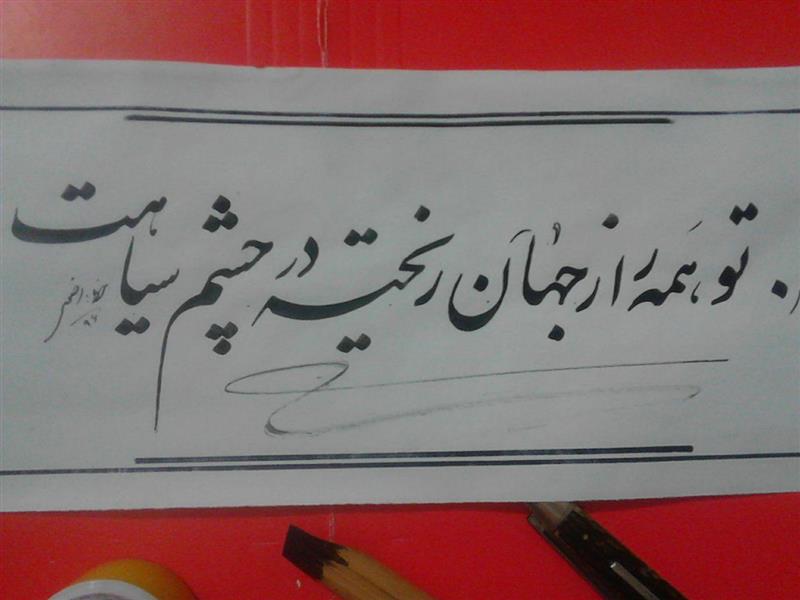 تو همه راز جهان ریخته در چشم سیاهت